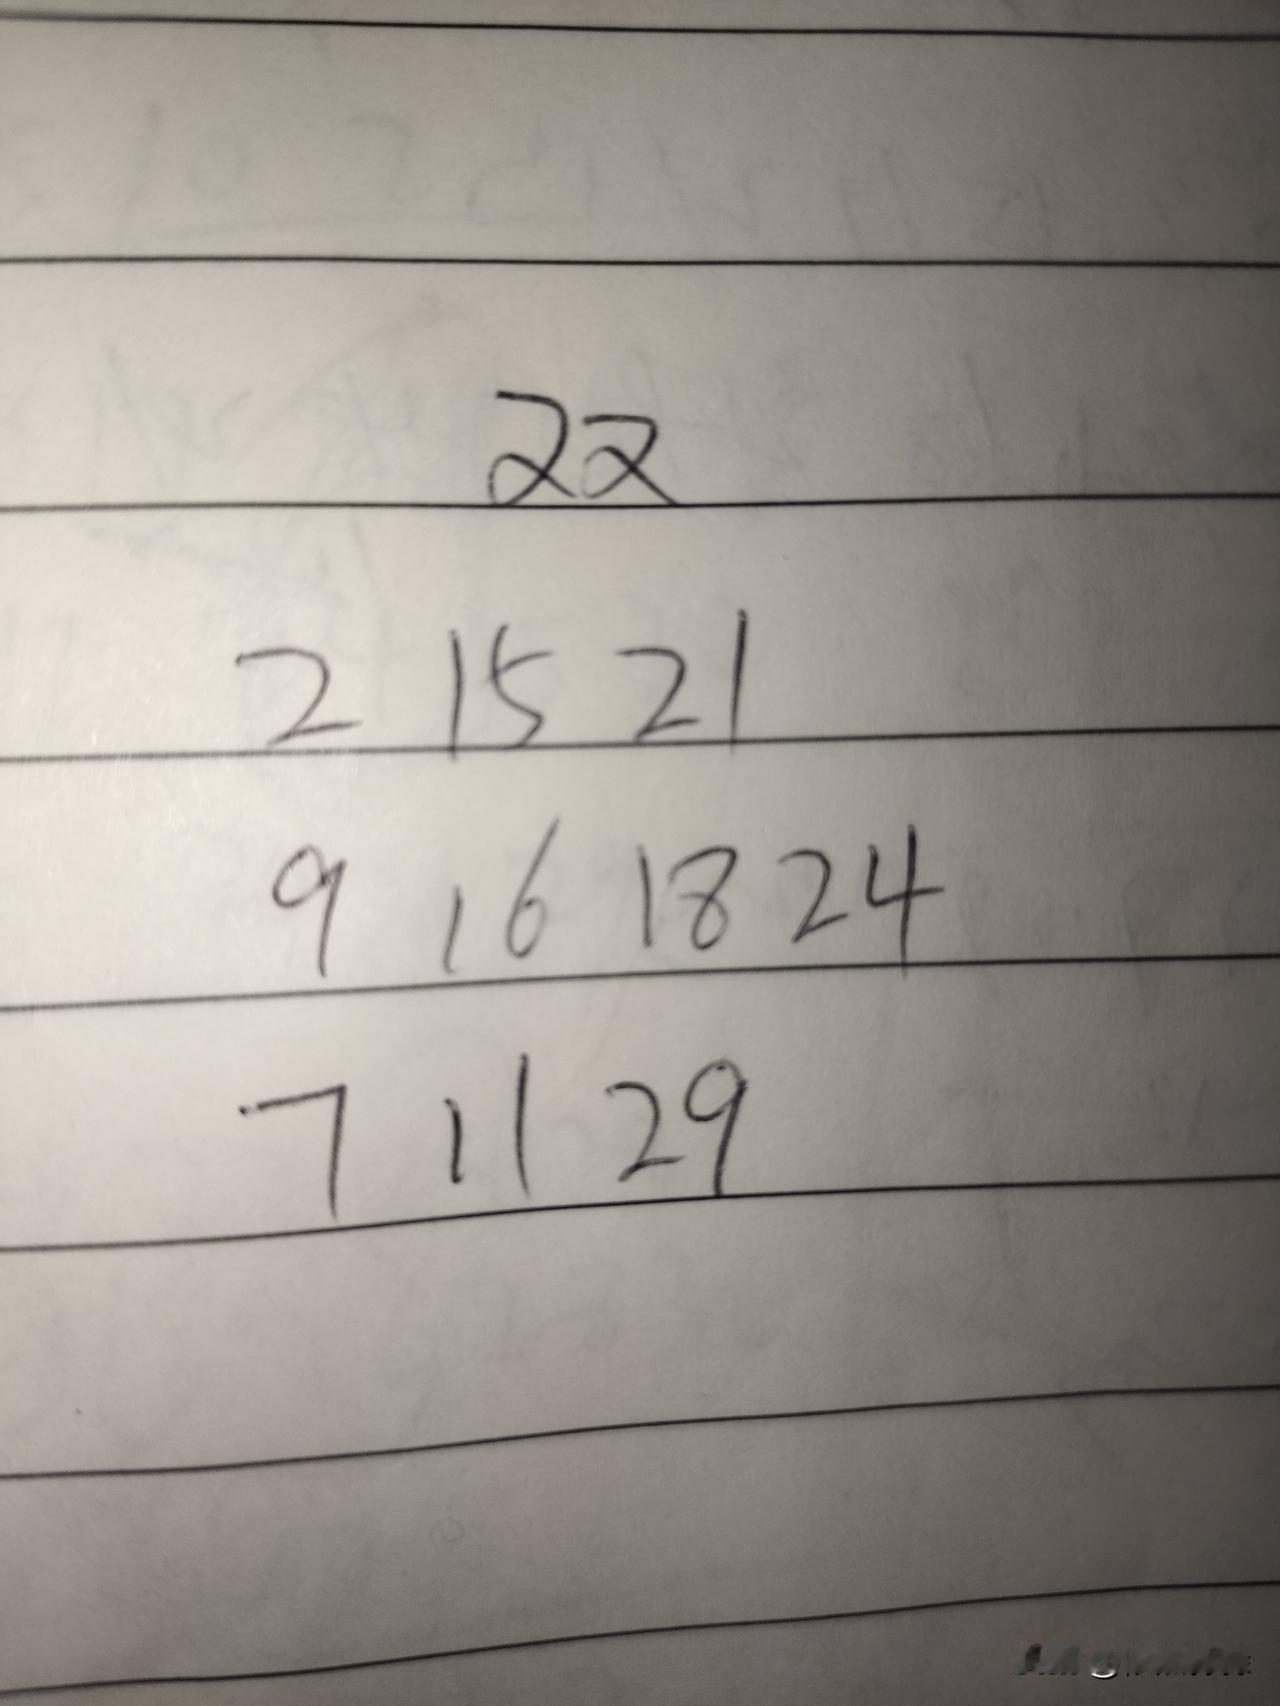 22
2 15 21
9 16 18 24
7 11 29